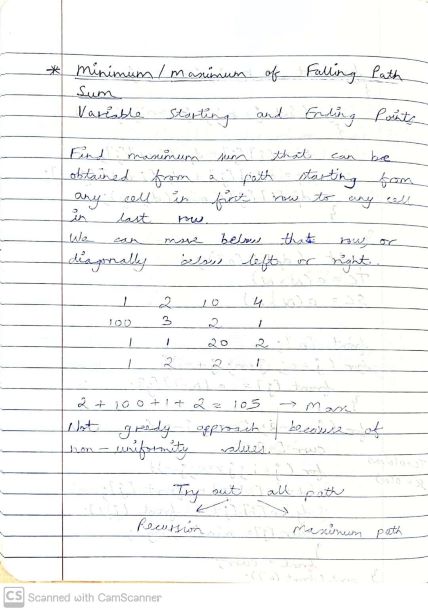 * Minimum / Maximum of Falling Path
Sum
Variable Starting and Ending Points
Find maximum sum that can be
obtained from a path starting from
any cell in first row to any cell
in last row.
We can move below that row, or
diagonally below left or right.
1 2 10 4
100 3 2 1
1 1 20 2
1 2 2 1
2 + 100 + 1 + 2 = 105 → Max
Not greedy approach because of
non-uniformity values.
Try out all path
Recursion Maximum path
CS Scanned with CamScanner